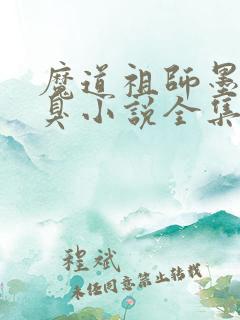 魔道祖师墨
臭小说全集
程斌
未经同意禁止转载